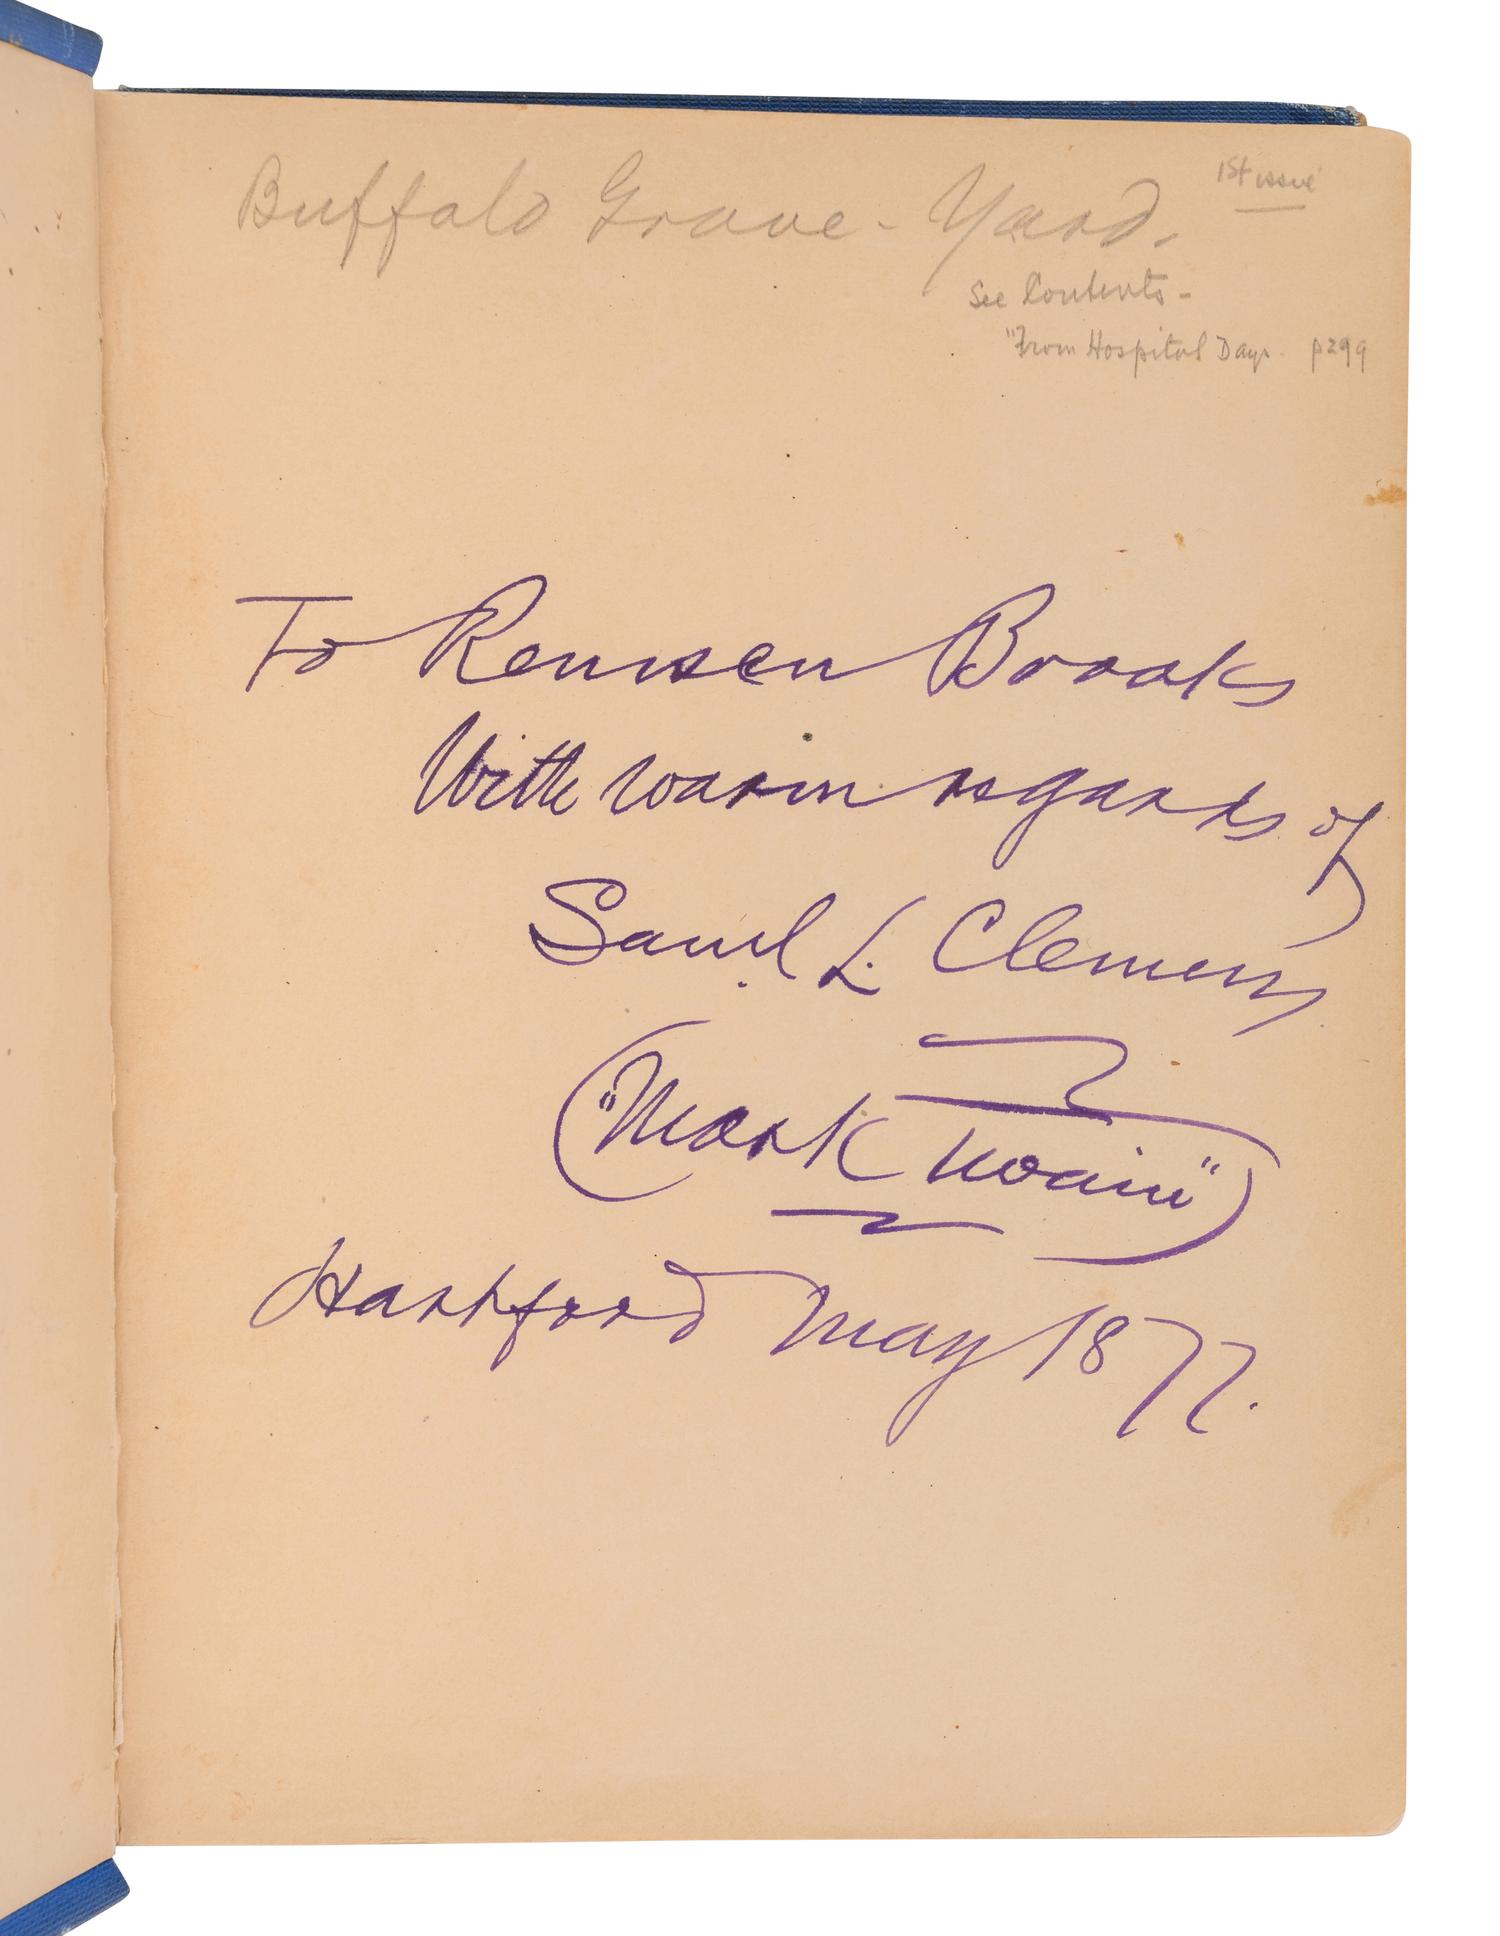 Buffalo Grave-Yard.
1st issue
See Contents-
"From Hospital Days. p299
To Remsen Brooks
With warm regards of
Saml. L. Clemens
("Mark Twain")
Hartford May 1877.